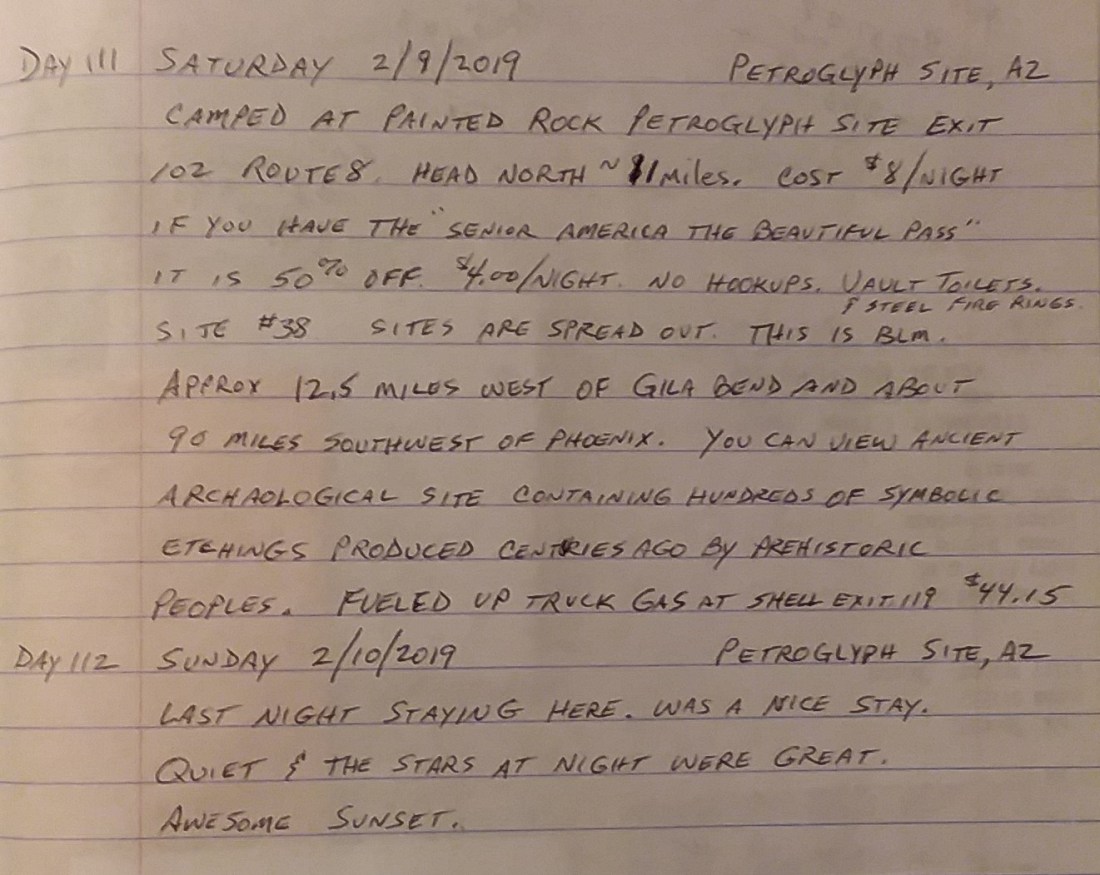 DAY 111 SATURDAY 2/9/2019 PETROGLYPH SITE, AZ
CAMPED AT PAINTED ROCK PETROGLYPH SITE EXIT
102 ROUTE 8. HEAD NORTH ~ 11 miles. COST $8/NIGHT
IF YOU HAVE THE "SENIOR AMERICA THE BEAUTIFUL PASS"
IT IS 50% OFF. $4.00/NIGHT. NO HOOKUPS. VAULT TOILETS.
& STEEL FIRE RINGS.
SITE #38 SITES ARE SPREAD OUT. THIS IS BLM.
APPROX 12.5 MILES WEST OF GILA BEND AND ABOUT
90 MILES SOUTHWEST OF PHOENIX. YOU CAN VIEW ANCIENT
ARCHAOLOGICAL SITE CONTAINING HUNDREDS OF SYMBOLIC
ETCHINGS PRODUCED CENTRIES AGO BY PREHISTORIC
PEOPLES. FUELED UP TRUCK GAS AT SHELL EXIT 119 $44.15
DAY 112 SUNDAY 2/10/2019 PETROGLYPH SITE, AZ
LAST NIGHT STAYING HERE. WAS A NICE STAY.
QUIET & THE STARS AT NIGHT WERE GREAT.
AWESOME SUNSET.